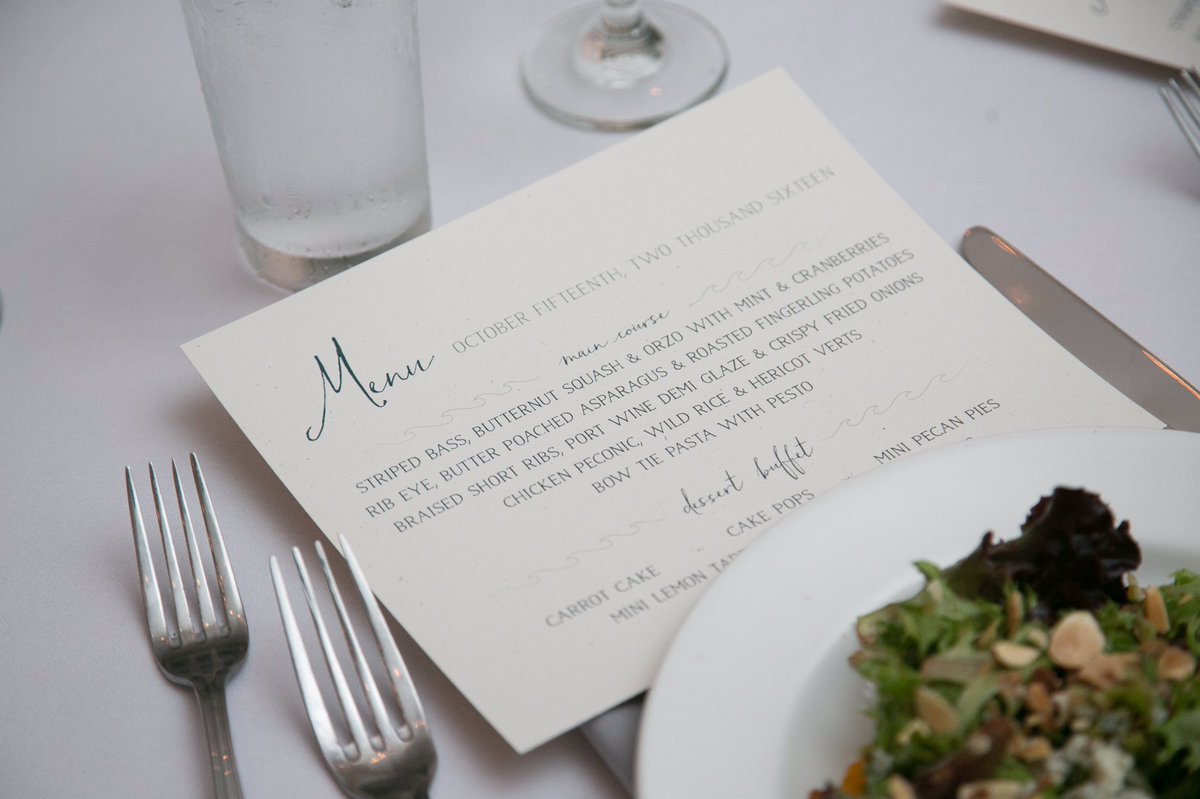 Menu OCTOBER FIFTEENTH, TWO THOUSAND SIXTEEN
main course
STRIPED BASS, BUTTERNUT SQUASH & ORZO WITH MINT & CRANBERRIES
RIB EYE, BUTTER POACHED ASPARAGUS & ROASTED FINGERLING POTATOES
BRAISED SHORT RIBS, PORT WINE DEMI GLAZE & CRISPY FRIED ONIONS
CHICKEN PECONIC, WILD RICE & HERICOT VERTS
BOW TIE PASTA WITH PESTO
dessert buffet
CARROT CAKE CAKE POPS MINI PECAN PIES
MINI LEMON